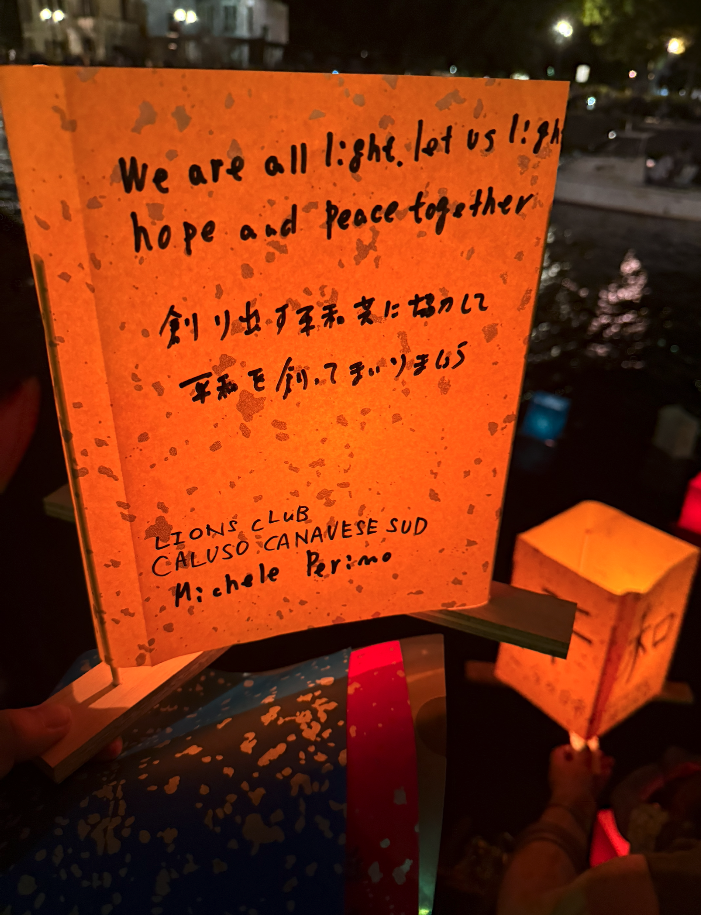 We are all light. let us ligh
hope and peace together
創り出す平和 共に協力して
平和を創ってまいりましょう
LIONS CLUB
CALUSO CANAVESE SUD
Michele Perino
和